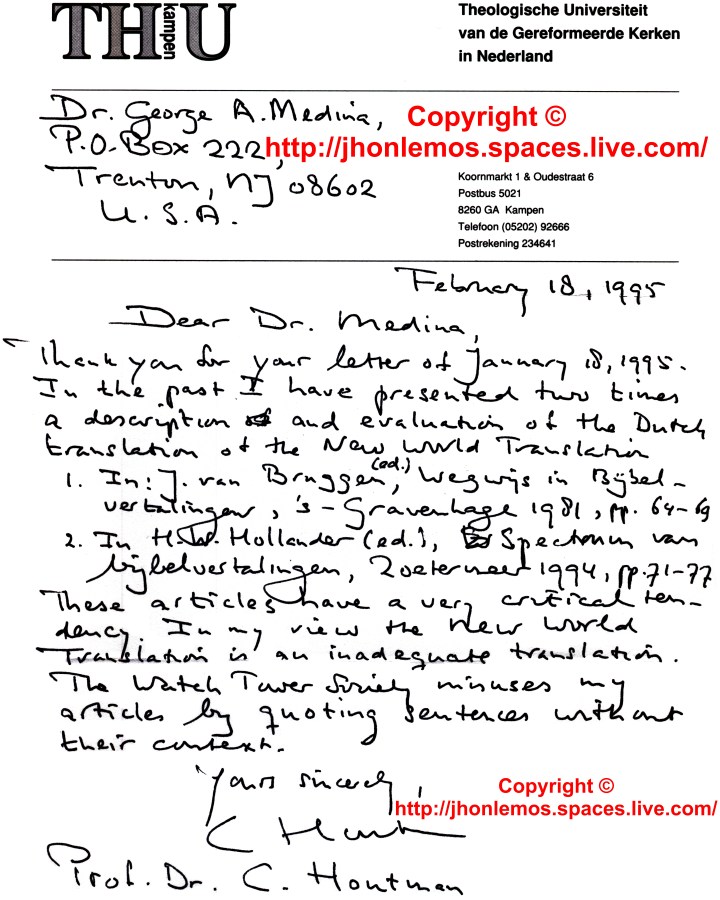 THU kampen
Theologische Universiteit
van de Gereformeerde Kerken
in Nederland
Dr. George A. Medina,
Copyright ©
P.O. Box 222,
http://jhonlemos.spaces.live.com/
Trenton, NJ 08602
U.S.A.
Koornmarkt 1 & Oudestraat 6
Postbus 5021
8260 GA Kampen
Telefoon (05202) 92666
Postrekening 234641
February 18, 1995
Dear Dr. Medina,
Thank you for your letter of January 18, 1995.
In the past I have presented two times
a description and evaluation of the Dutch
translation of the New World Translation
1. In: J. van Bruggen (ed.), Wegwijs in Bijbel-
vertalingen, 's-Gravenhage 1981, pp. 64-69
2. In H.W. Hollander (ed.), Spectrum van
bijbelvertalingen, Zoetermeer 1994, pp. 71-77
These articles have a very critical ten-
dency. In my view the New World
Translation is an inadequate translation.
The Watch Tower Society misuses my
articles by quoting sentences without
their context.
Yours sincerely,
Copyright ©
http://jhonlemos.spaces.live.com/
C Houtman
Prof. Dr. C. Houtman